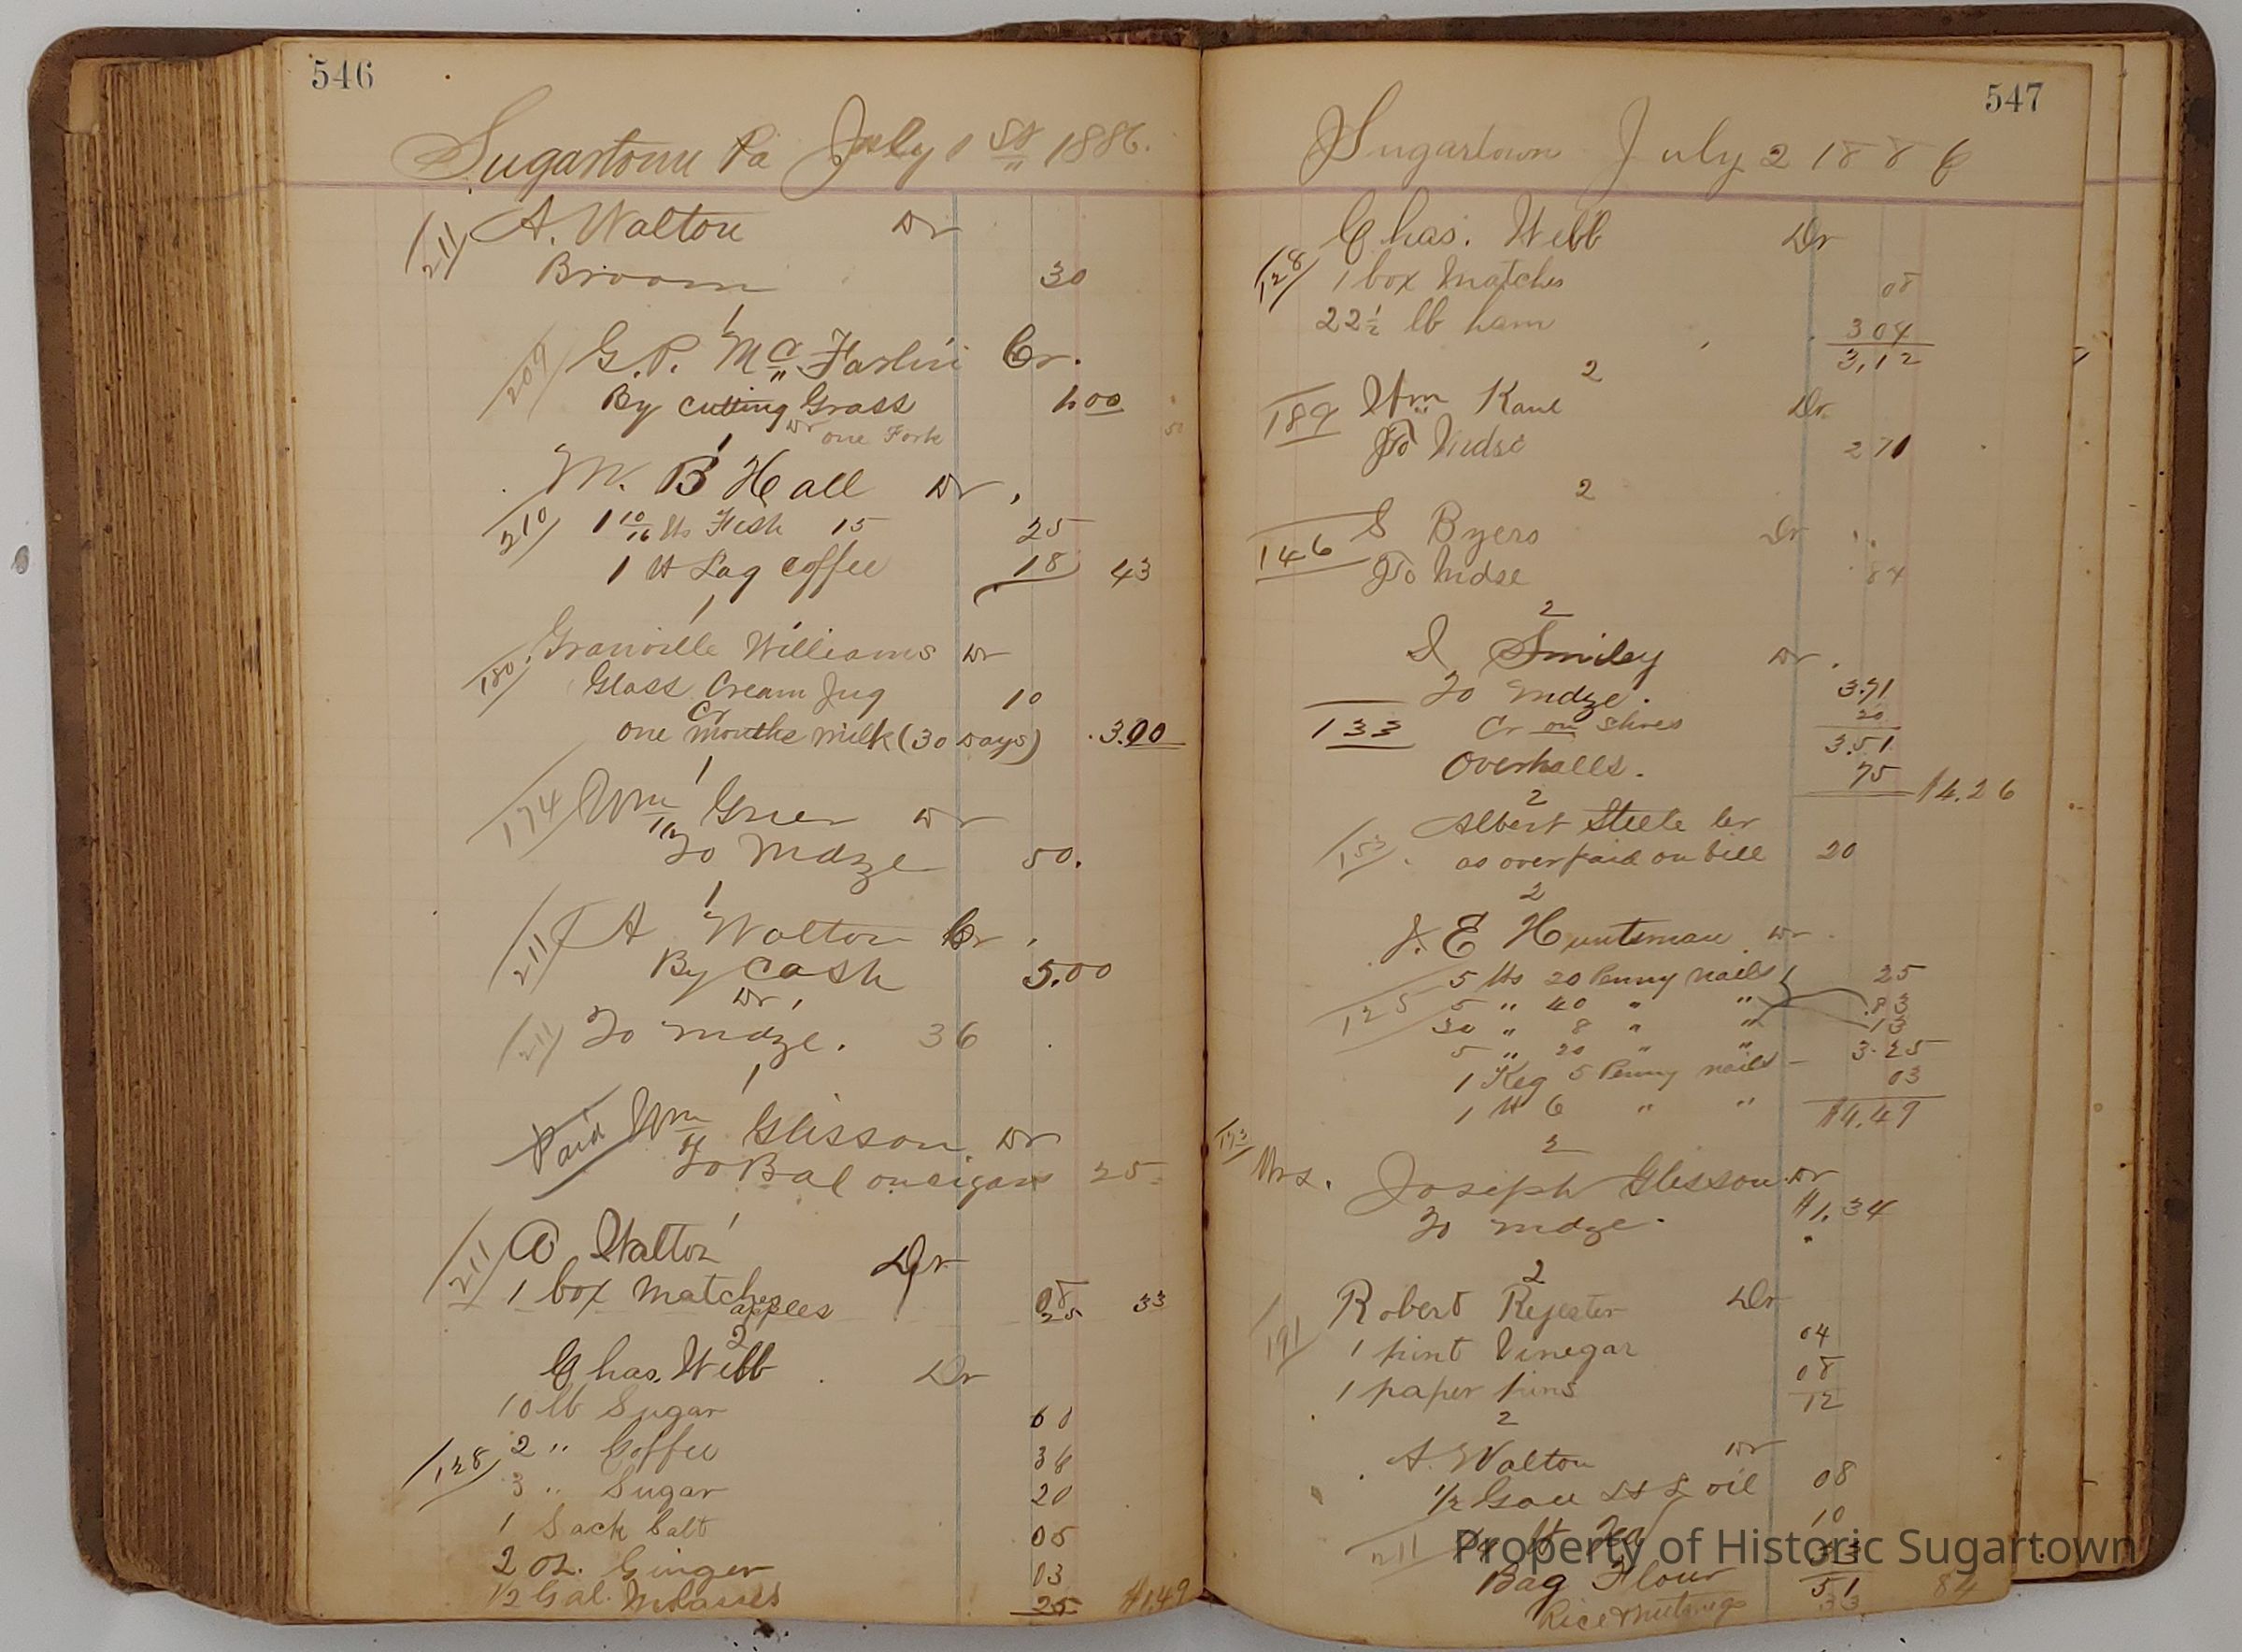 546
Sugartown Pa July 1st 1886.
211 A. Walton Dr
Broom 30
1
209 G. P. Mc Farlin Cr.
By cutting Grass 1.00
Dr one Fork 50
1
M. B Hall Dr.
210 1 10/16 lbs Fish 15 25
1 lb Lag coffee 18 43
1
180 Granville Williams Dr
Glass Cream Jug 10
Cr
one months milk (30 Days) 3.00
1
174 Wm Grier Dr
To Mdze 50.
1
211 A Walton Cr.
By Cash 5.00
Dr.
211 To mdze. 36
1
Paid Wm Glisson. Dr
To Bal on cigars 25
211 A Walton Dr
1 box Matches 08
apples 25 33
2
Chas. Webb Dr
10 lb Sugar 60
128 2 " Coffee 36
3 " Sugar 20
1 Sack Salt 05
2 oz. Ginger 03
1/2 Gal. Molasses 25 $1.49
547
Sugartown July 2 1886
Chas. Webb Dr
128 1 box Matches 08
22 1/2 lb ham 304
3,12
2
189 Wm Kane Dr.
To Mdse 271
2
146 S Byers Dr
To Mdse 84
2
I Smiley Dr.
To mdze. 3.71
133 Cr on Shoes 20
3.51
Overhalls. 75 $4.26
2
Albert Steele Cr
153 as overpaid on bill 20
2
J. E Huntsman Dr
5 lbs 20 Penny nails 25
125 5 " 40 " " .83
30 " 8 " " 13
5 " 20 " " 3.25
1 Keg 5 Penny nails 03
1 lb 6 " " $4.49
2
173 Mrs. Joseph Glisson Dr
To mdze. $1.34
2
Robert Rejester Dr
191 1 pint Vinegar 04
1 paper pins 08
12
2
A. Walton Dr
1/2 Gall oil 08
211 1/4 lb Tea 10
Bag Flour 33
51
Rice & nutmegs 33 84
Property of Historic Sugartown